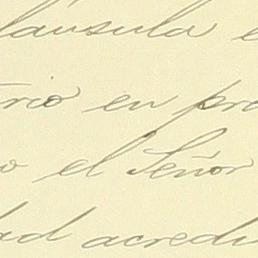 láusula e
rio en pro
o el Señor
ad acredi